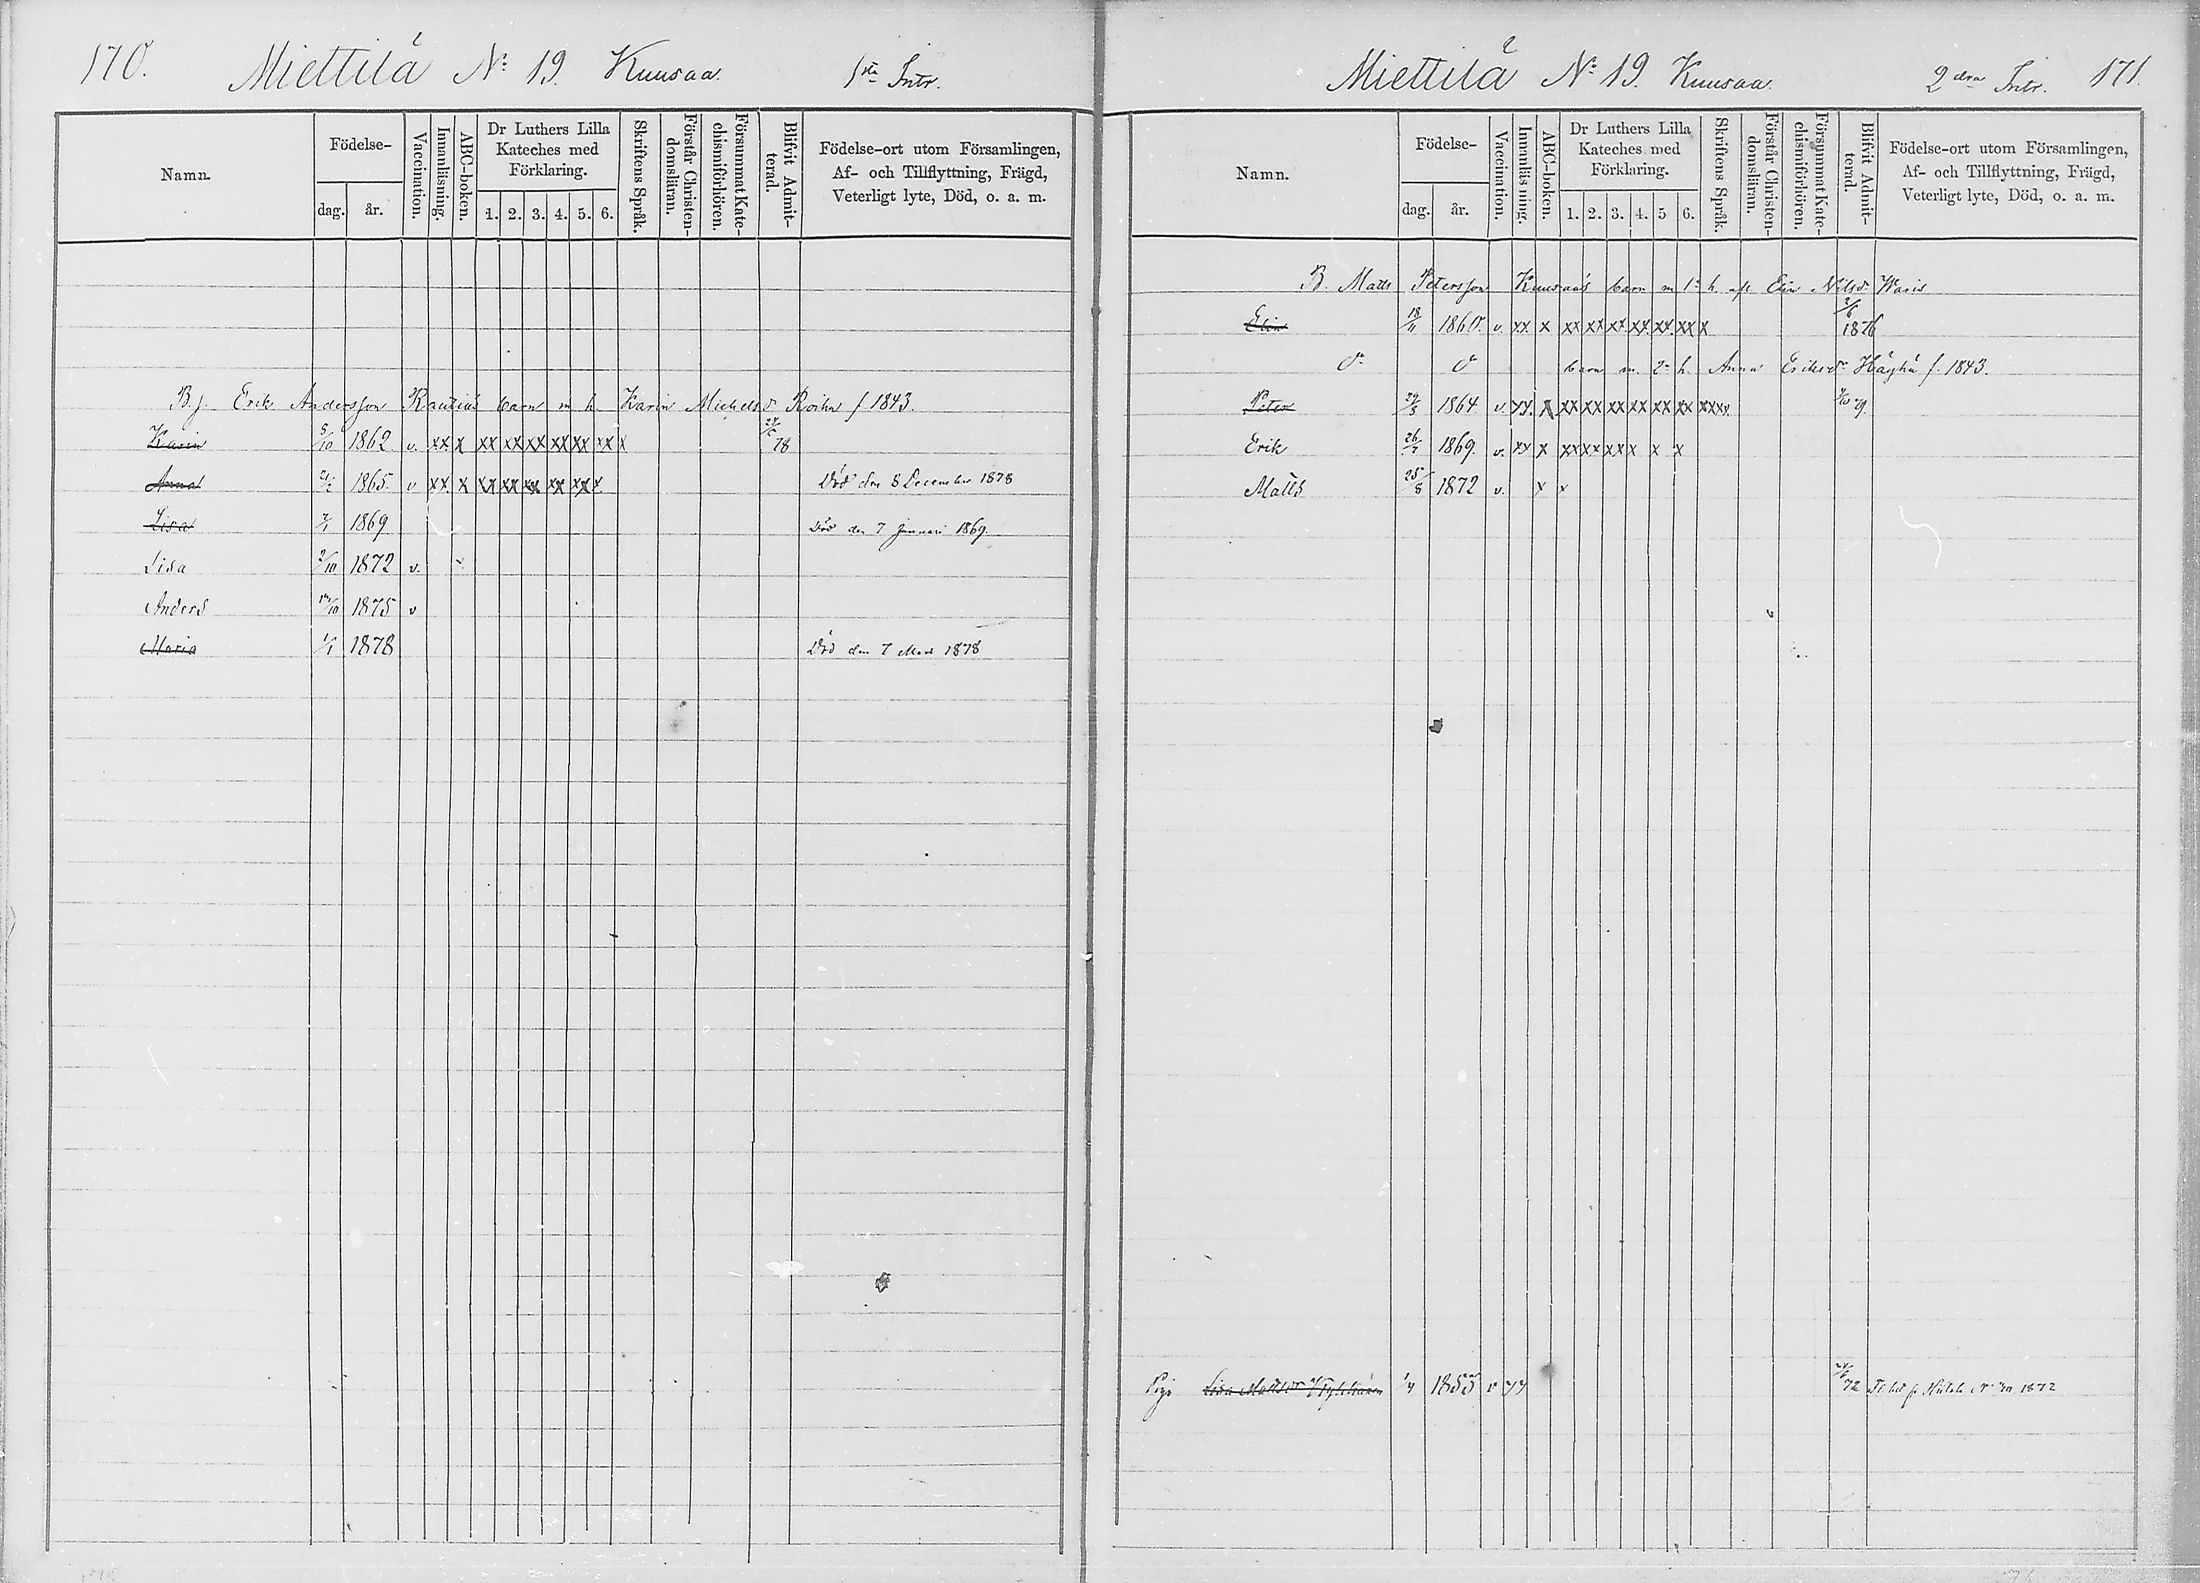 170. Miettilä No 19. Kuusaa. 1sta Intr.
Namn.
Födelse-
dag. år.
Vaccination.
Innanläsning.
ABC-boken.
Dr Luthers Lilla
Kateches med
Förklaring.
1. 2. 3. 4. 5. 6.
Skriftens Språk.
Förstår Christen-
domsläran.
Försummat Kate-
chismiförhören.
Blifvit Admit-
terad.
Födelse-ort utom Församlingen,
Af- och Tillflyttning, Frägd,
Veterligt lyte, Död, o. a. m.
B.j. Erik Andersson barn m h Karin Michelsdr f 1843.
Karin 8/10 1862 v. xx x xx xx xx xx xx xx x 78
Anna 21/2 1865. v xx x xx xx xx xx xx x Död den 8 December 1878
Lisa 7/1 1869 Död den 7 Januari 1869
Lisa 2/10 1872 v.
Anders 1875 v
Maria 1/1 1878 Död den 7 Mars 1878
Miettilä No 19. Kuusaa. 2dra Intr. 171.
Namn.
Födelse-
dag. år.
Vaccination.
Innanläsning.
ABC-boken.
Dr Luthers Lilla
Kateches med
Förklaring.
1. 2. 3. 4. 5 6.
Skriftens Språk.
Förstår Christen-
domsläran.
Försummat Kate-
chismiförhören.
Blifvit Admit-
terad.
Födelse-ort utom Församlingen,
Af- och Tillflyttning, Frägd,
Veterligt lyte, Död, o. a. m.
B. Matts Petersson Kuusaas barn m 1a h. afl. Elin Nilsdr Waris
Elin 18/11 1860. v. xx x xx xx xx xx xx xx x 2/6 1876
do do barn m. 2a h. Anna Eriksdr Häyhä f. 1843.
Peter 29/5 1864 v. xx x xx xx xx xx xx xx xxxx 79
Erik 26/7 1869. v. xx x xx xx xx x x x
Matts 25/8 1872 v. x x
Piga Lisa Mattsdr 1855 v 72 1872